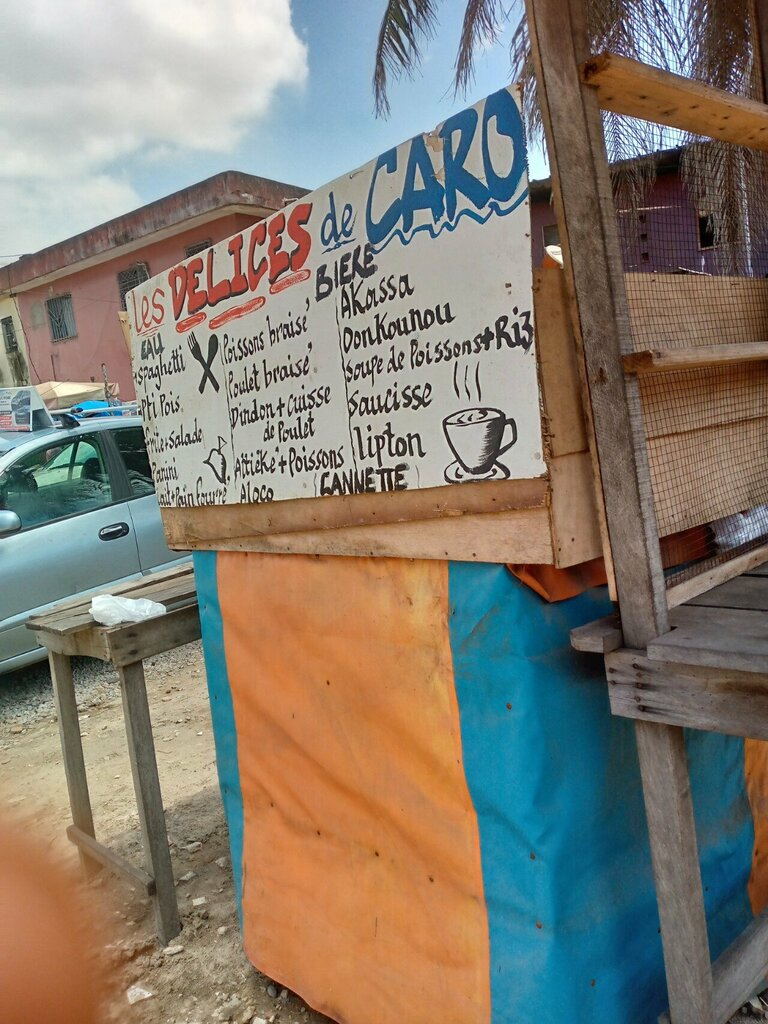 les DELICES de CARO
EAU
Spaghetti
Pti Pois
+Salade
Panini
Lait+Pain fourré
Poissons braisé
Poulet braisé
Dindon+Cuisse
de Poulet
Attiéké+Poissons
Aloco
BIERE
AKassa
DonKounou
Soupe de Poissons+Riz
Saucisse
lipton
CANNETTE